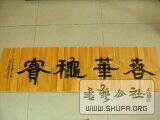 春華穐實
書藝公社
WWW.SHUFA.ORG